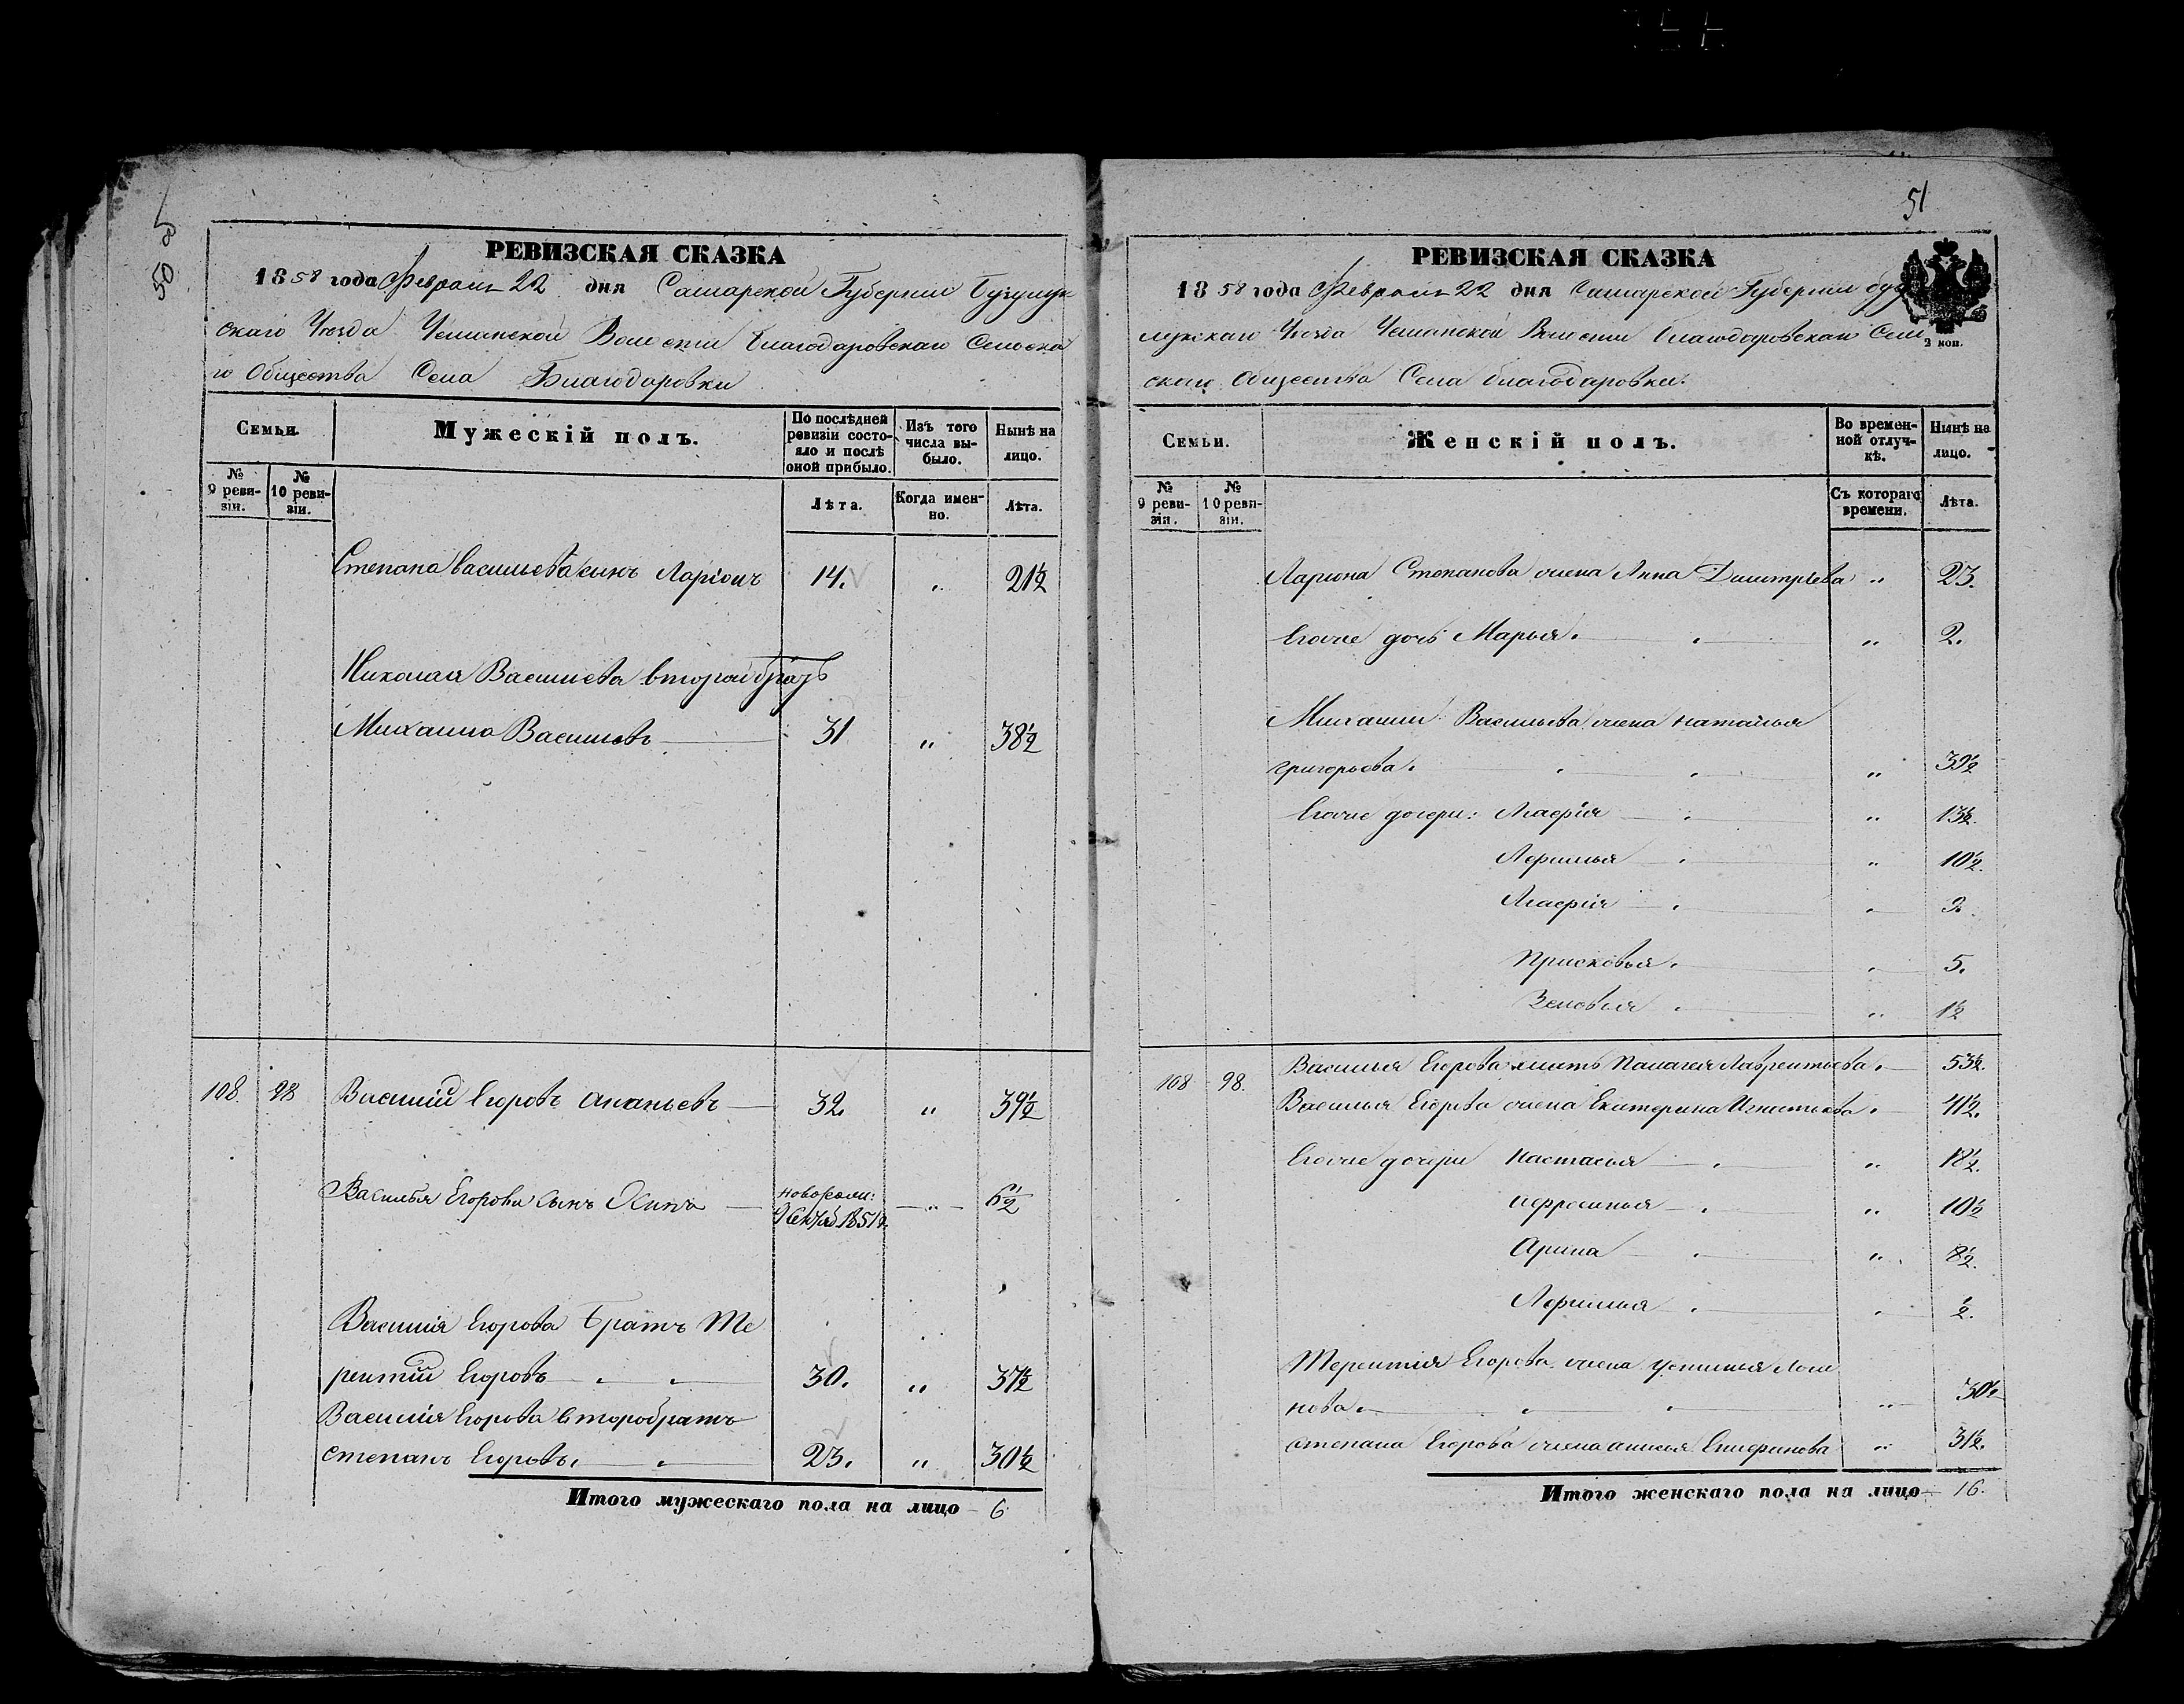 50
РЕВИЗСКАЯ СКАЗКА
1858 года Февраля 22 дня Самарской Губернии Бузулук
скаго Уезда Волости Благодаровскаго Сельска
го Общества Села Благодаровки
Семьи.
Мужескій полъ.
По послѣдней ревизіи состояло и послѣ оной прибыло.
Изъ того числа выбыло.
Нынѣ на лицо.
№ 9 ревизіи.
№ 10 ревизіи.
Лѣта.
Когда именно.
Лѣта.
Степана Васильева сынъ Ларіонъ 14. „ 21½
Николая Васильева второй братъ
Михаило Васильевъ 31 „ 38½
108. 98 Василій Егоровъ Ананьевъ 32. „ 39½
Василья Егорова сынъ Осипъ 6½
Василія Егорова Братъ Те
рентій Егоровъ 30. „ 37½
Василія Егорова второ братъ
Степанъ Егоровъ. 23. „ 30½
Итого мужескаго пола на лицо 6
51
РЕВИЗСКАЯ СКАЗКА
1858 года Февраля 22 дня Самарской Губернии Бузу
лукскаго Уезда Волости Благодаровскаго Сель
скаго Общества Села Благодаровки.
2 коп.
Семьи.
Женскій полъ.
Во временной отлучкѣ.
Нынѣ на лицо.
№ 9 ревизіи.
№ 10 ревизіи.
Съ котораго времени.
Лѣта.
Лариона Степанова жена Анна Дмитріева „ 23.
Егоже дочь Марья. „ 2.
Михаила Васильева жена Наталья
Григорьева. „ 39½
Егоже дочери: Агафія „ 13½.
Афимья „ 10½.
Агафія 9.
Прасковья. 5.
Зеновья „ 1½
108 98. Василья Егорова мать Палагея Лаврентьева. 53½.
Василья Егорова жена Екатерина Игнатьева. 41½.
Егоже дочери Настасья „ 18½.
Аефросинья „ 10½
Арина „ 8½.
Афимья ½.
Терентія Егорова жена Устинья Логи
нова. „ 30½
Степана Егорова жена Анисья Епифанова „ 31½.
Итого женскаго пола на лицо 16.